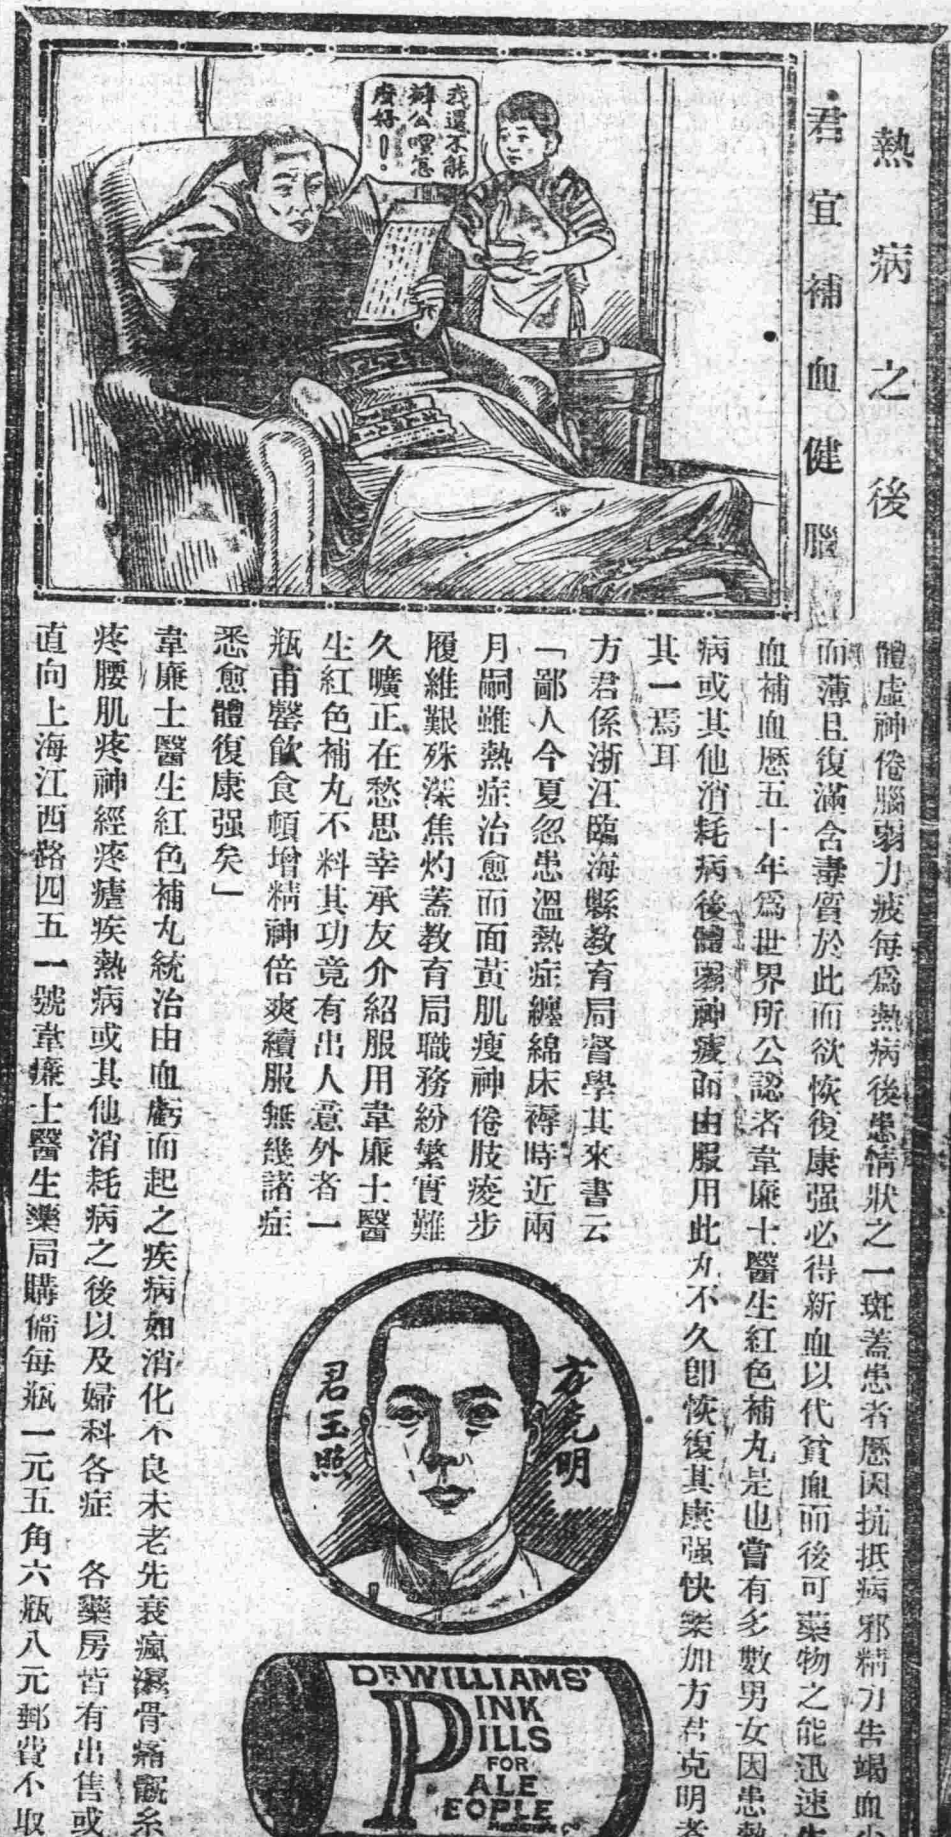 熱病之後
君宜補血健腦
我還不能
辦公哩怎
麼好！。
體虛神倦腦弱力疲每爲熱病後患情狀之一斑蓋患者歷因抗抵病邪精力告竭血少
而薄且復滿含毒質於此而欲恢復康强必得新血以代貧血而後可藥物之能迅速生
血補血歷五十年爲世界所公認者韋廉士醫生紅色補丸是也嘗有多數男女因患熱
病或其他消耗病後體弱神疲而由服用此丸不久卽恢復其康强快樂如方君克明者
其一焉耳
方君係浙江臨海縣教育局督學其來書云
「鄙人今夏忽患溫熱症纏綿床褥時近兩
月嗣雖熱症治愈而面黃肌瘦神倦肢痠步
履維艱殊深焦灼蓋教育局職務紛繁實難
久曠正在愁思幸承友介紹服用韋廉士醫
生紅色補丸不料其功竟有出人意外者一
瓶甫罄飲食頓增精神倍爽續服無幾諸症
悉愈體復康强矣」
方克明
君玉照
韋廉士醫生紅色補丸統治由血虧而起之疾病如消化不良未老先衰瘋濕骨痛
疼腰肌疼神經疼瘧疾熱病或其他消耗病之後以及婦科各症 各藥房皆有出售或
直向上海江西路四五一號韋廉士醫生藥局購備每瓶一元五角六瓶八元郵費不取
DR WILLIAMS'
PINK
PILLS
FOR
PALE
PEOPLE
MEDICINE CO